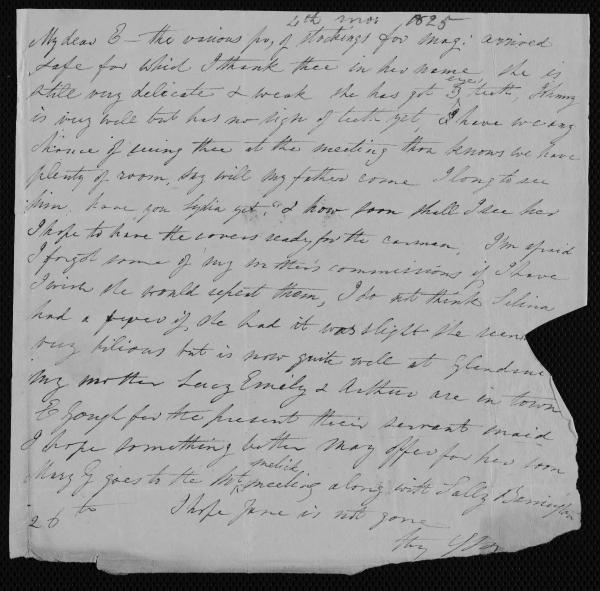 4th mo: 1825
My dear E - the various pr, of stockings for mag: arrived
safe for which I thank thee in her name, she is
still very delicate & weak she has got 3 teeth, Johnny
is very well but has no sign of teeth yet, have we any
chance of seeing thee at the meeting thou knows we have
plenty of room, say will my father come I long to see
him. have you Lydia yet, & how soon shall I see her
I hope to have the covers ready for the carman, I'm afraid
I forgot some of my mother's commissions if I have
I wish she would repeat them, I do not think Selina
had a fever if she had it was slight she
very bilious but is now quite well at
my mother Lucy Emily & Arthur are in town
E Gough for the present their servant maid
I hope something better may offer for her soon
Mary G goes to the meeting along with Sally
26th I hope Jane is not gone
thy